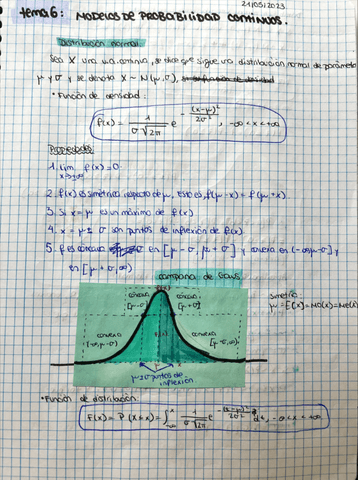 21/05/2023
tema 6: MODELOS DE PROBABILIDAD CONTINUOS.
Distribución normal:
Sea X una v.a. continua, se dice que sigue una distribución normal de parámetros
μ y σ y se denota X ~ N(μ, σ),
• Función de densidad:
f(x) = 1/(σ√2π) e^(-(x-μ)²/2σ²), -∞ < x < +∞
Propiedades:
1. lim x→±∞ f(x) = 0
2. f(x) es simétrica respecto de μ, esto es, f(μ-x) = f(μ+x).
3. Si x = μ es un máximo de f(x)
4. x = μ ± σ son puntos de inflexión de f(x).
5. f es cóncava en [μ-σ, μ+σ] y convexa en (-∞, μ-σ] y
en [μ+σ, ∞)
campana de Gauss
cóncava cóncava
[μ-σ] [μ+σ]
convexa convexa
μ±σ puntos de
inflexión
Simetría
μ = E[X] = MO(X) = Me(X)
• Función de distribución:
F(x) = P(X ≤ x) = ∫ -∞ x 1/(σ√2π) e^(-(x-μ)²/2σ²) dt, -∞ < x < +∞